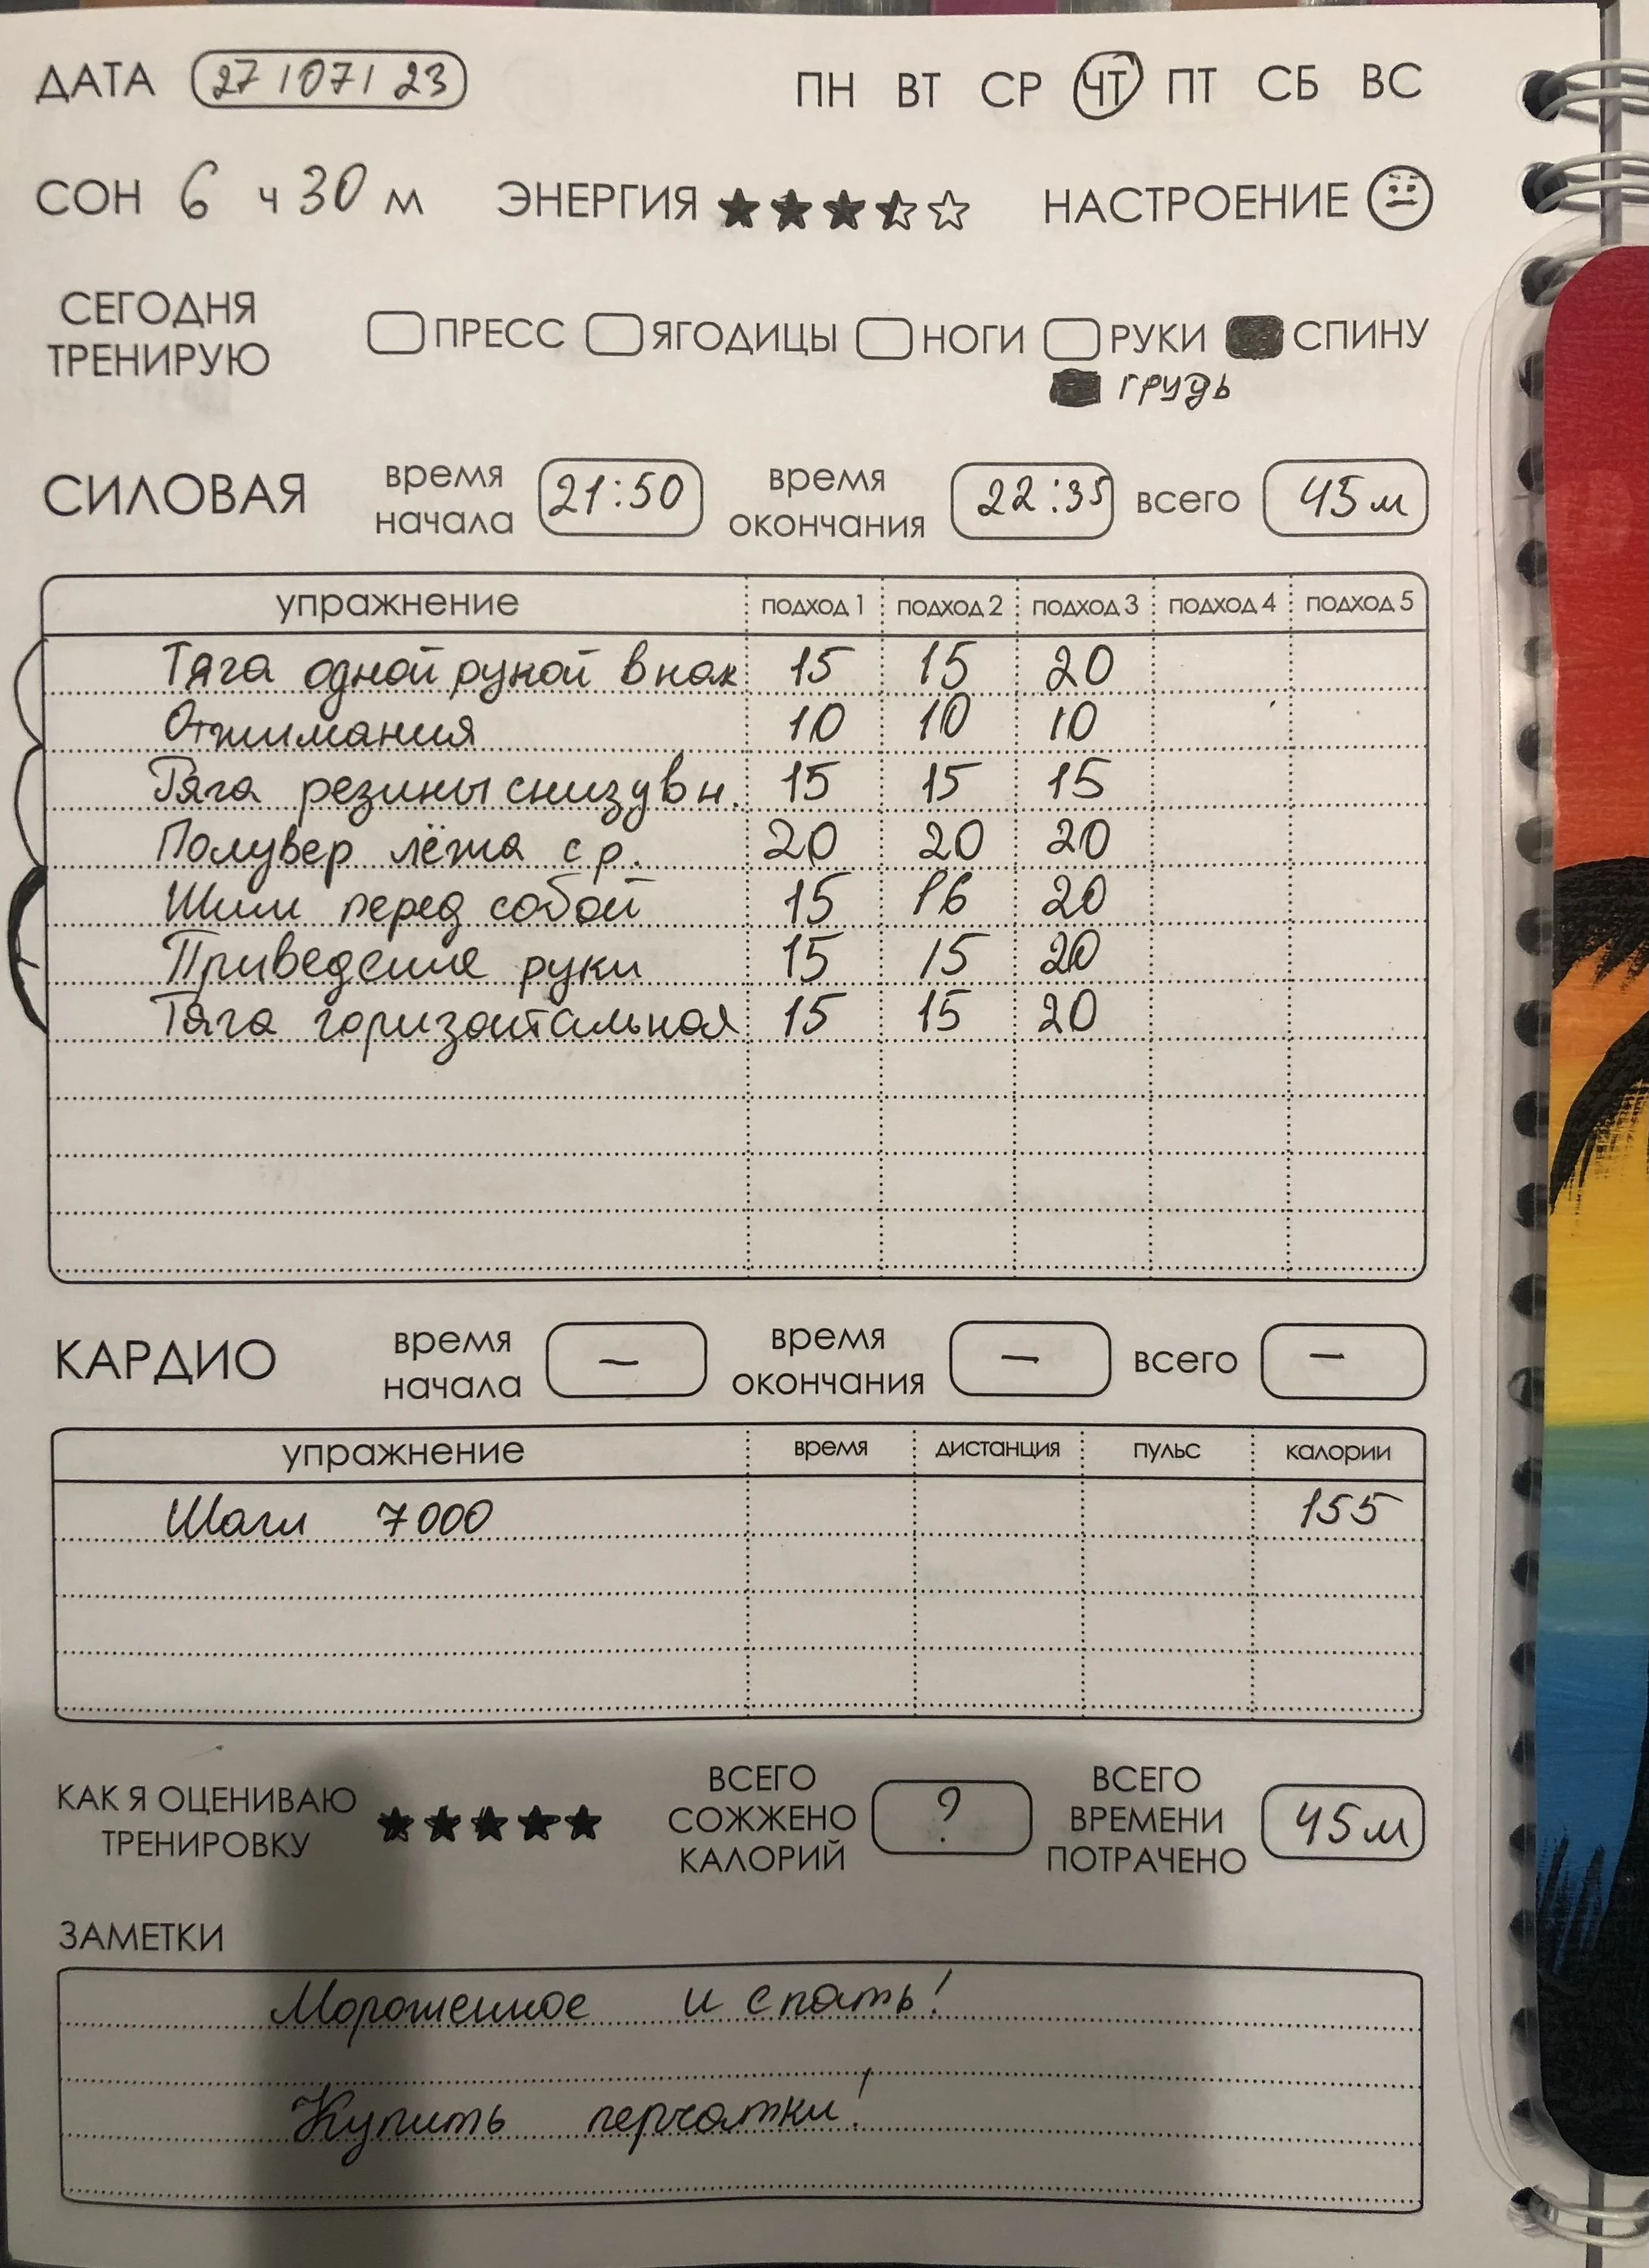 ДАТА 27/07/23 ПН ВТ СР ЧТ ПТ СБ ВС
СОН 6 ч 30 м ЭНЕРГИЯ НАСТРОЕНИЕ
СЕГОДНЯ ТРЕНИРУЮ ПРЕСС ЯГОДИЦЫ НОГИ РУКИ СПИНУ
грудь
СИЛОВАЯ время начала 21:50 время окончания 22:35 всего 45м
упражнение подход 1 подход 2 подход 3 подход 4 подход 5
Тяга одной рукой в нак 15 15 20
Отжимания 10 10 10
Тяга резины снизу вн. 15 15 15
Полувер лёжа с р. 20 20 20
Жим перед собой 15 16 20
Приведение руки 15 15 20
Тяга горизонтальная 15 15 20
КАРДИО время начала — время окончания — всего —
упражнение время дистанция пульс калории
Шаги 7000 155
КАК Я ОЦЕНИВАЮ ТРЕНИРОВКУ ВСЕГО СОЖЖЕНО КАЛОРИЙ ? ВСЕГО ВРЕМЕНИ ПОТРАЧЕНО 45м
ЗАМЕТКИ
Мороженное и спать!
Купить перчатки!